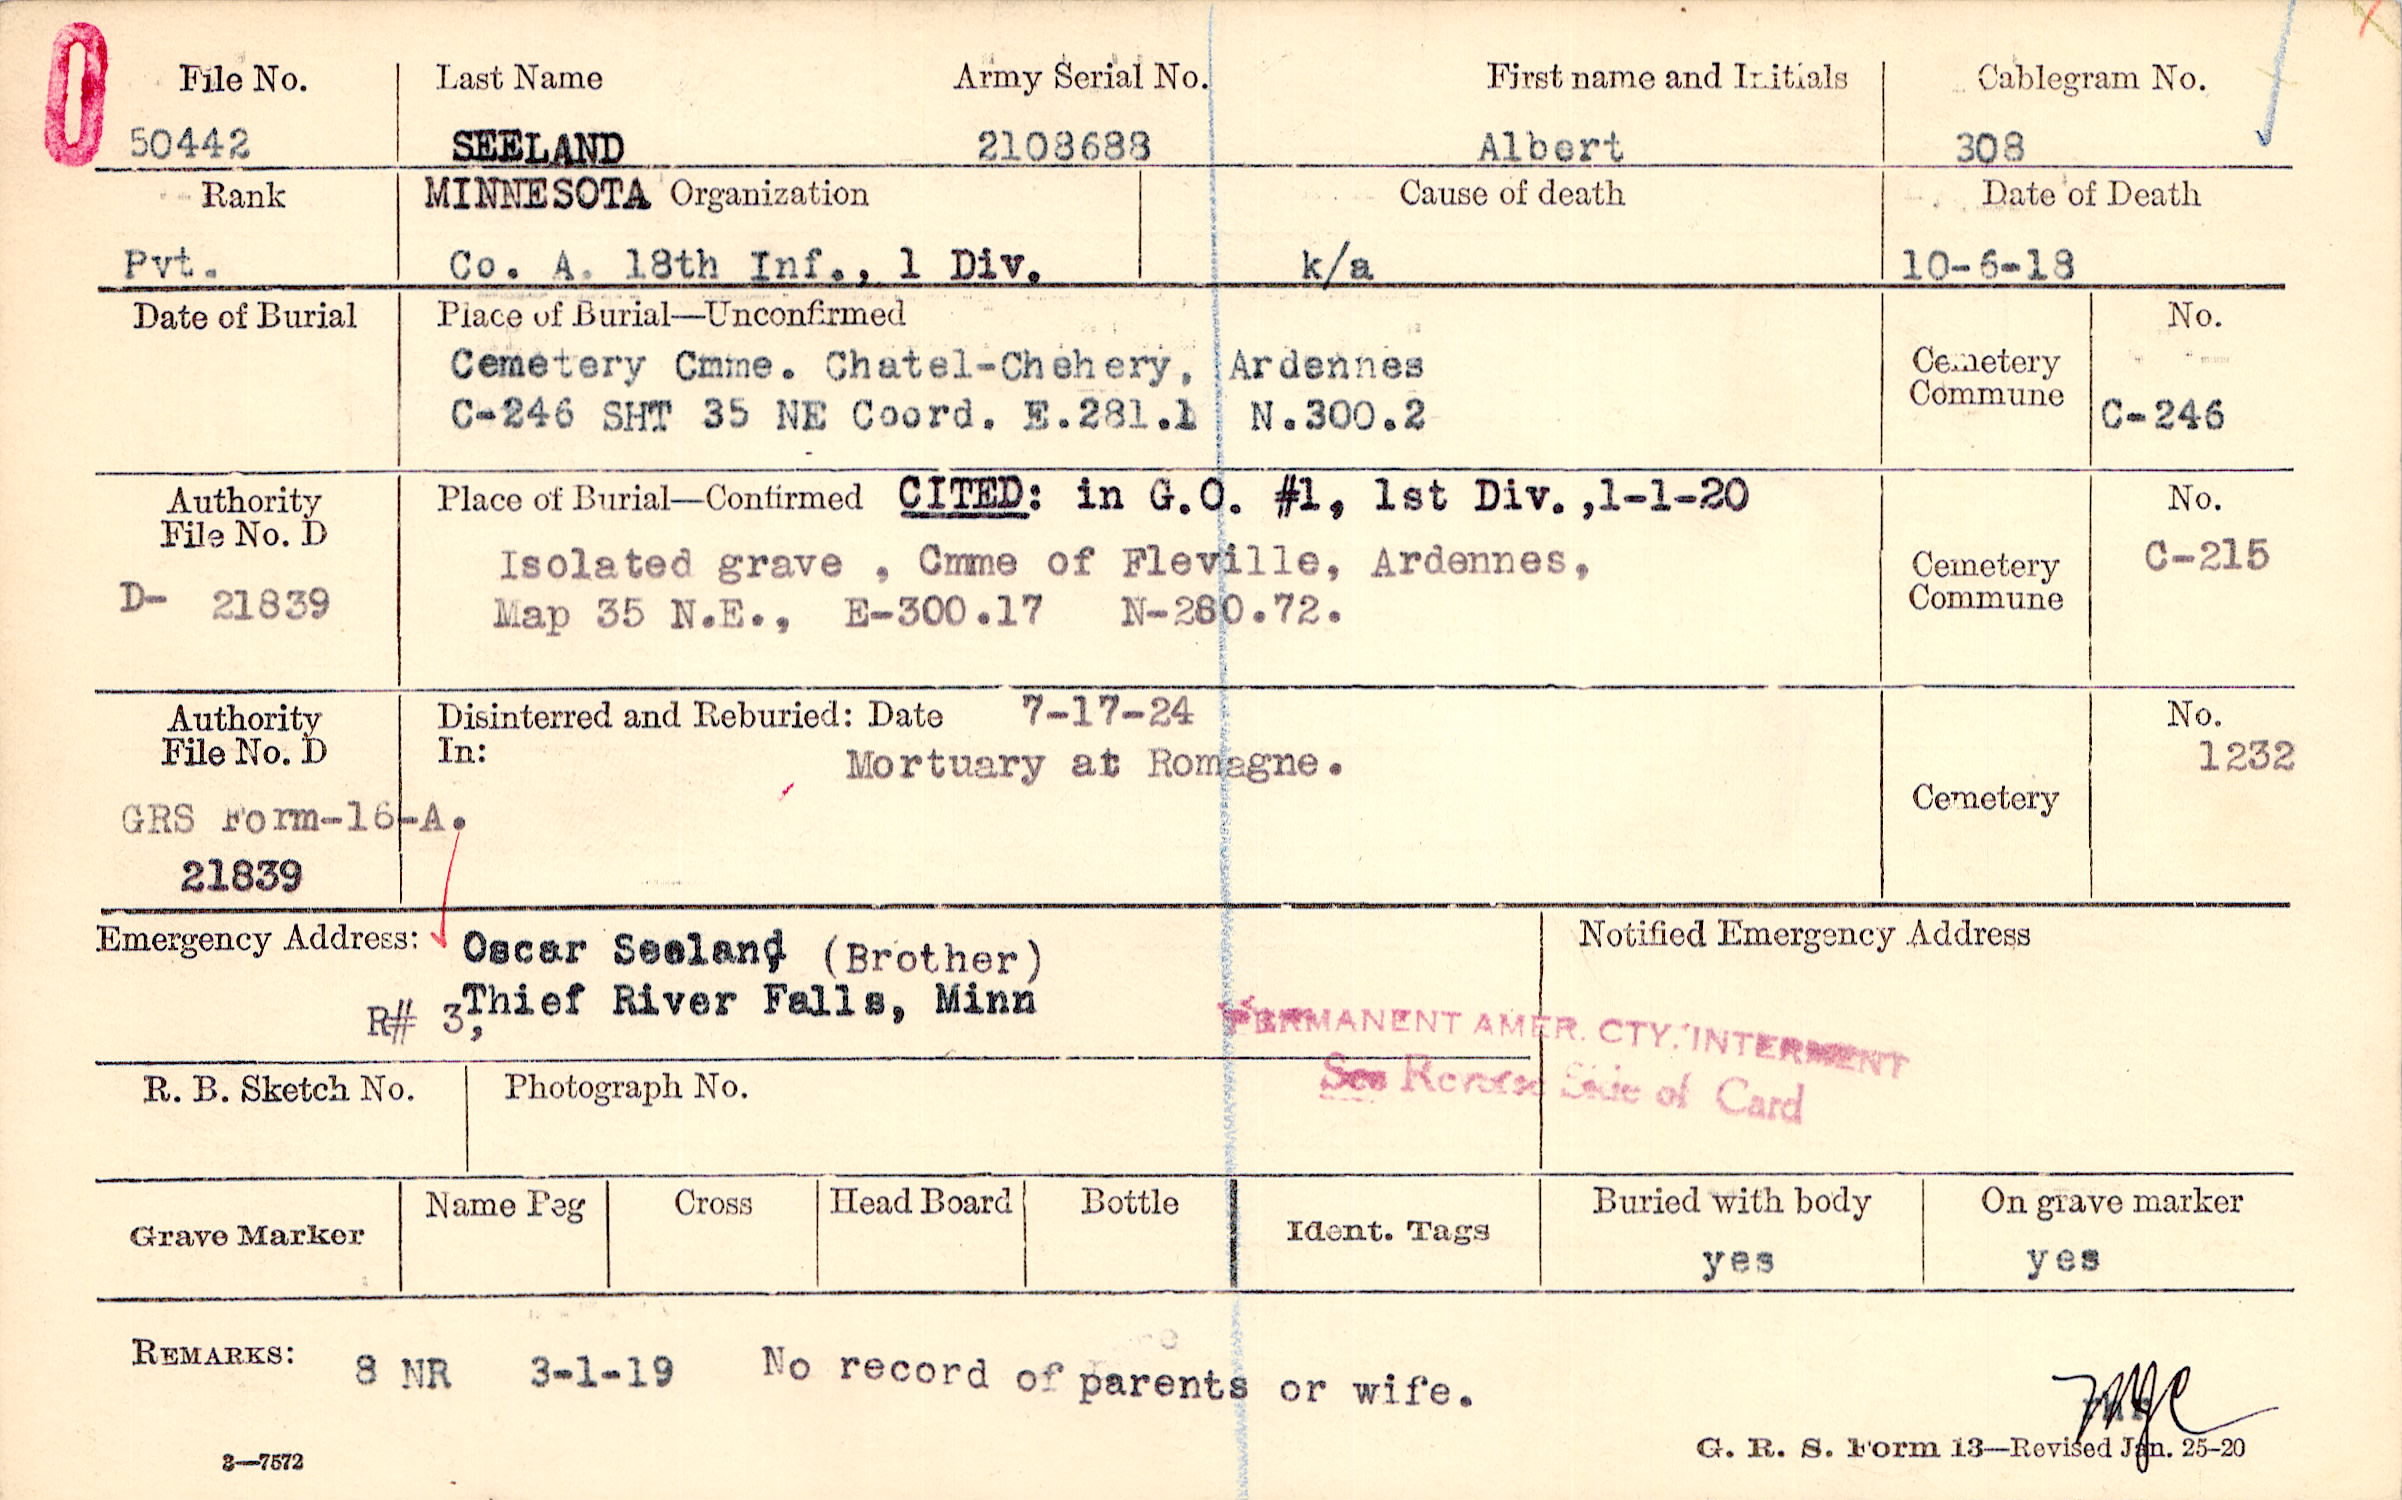 File No. Last Name Army Serial No. First name and Initials Cablegram No.
50442 SEELAND 2108688 Albert 308
Rank MINNESOTA Organization Cause of death Date of Death
Pvt. Co. A. 18th Inf., 1 Div. k/a 10-6-18
Date of Burial Place of Burial—Unconfirmed No.
Cemetery Cmne. Chatel-Chehery, Ardennes Cemetery
C-246 SHT 35 NE Coord. E.281.1 N.300.2 Commune C-246
Authority Place of Burial—Confirmed CITED: in G.O. #1, 1st Div.,1-1-20 No.
File No. D
Isolated grave , Cmme of Fleville, Ardennes, Cemetery C-215
D- 21839 Map 35 N.E., E-300.17 N-280.72. Commune
Authority Disinterred and Reburied: Date 7-17-24 No.
File No. D In: Mortuary at Romagne. 1232
Cemetery
GRS Form-16-A.
21839
Emergency Address: Oscar Seeland (Brother) Notified Emergency Address
R# 3, Thief River Falls, Minn
PERMANENT AMER. CTY. INTERMENT
See Reverse Side of Card
R. B. Sketch No. Photograph No.
Grave Marker Name Peg Cross Head Board Bottle Ident. Tags Buried with body On grave marker
yes yes
REMARKS: 8 NR 3-1-19 No record of parents or wife.
3—7572 G. R. S. Form 13—Revised Jan. 25-20